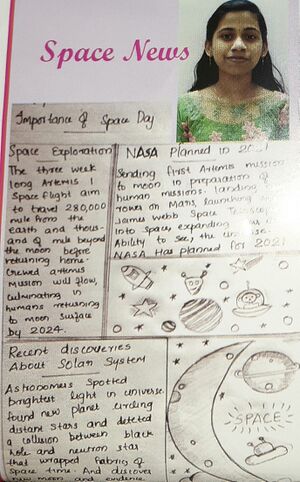 Space News
Importance of Space Day
Space Exploration
The three week
long Artemis I
Space flight aim
to travel 280,000
mile from the
earth and thous-
and of mile beyond
the moon before
returning home.
Crewed artemis
mission will flow,
culminating in
humans returning
to moon surface
by 2024.
NASA Planned in
Sending first Artemis mission
to moon in preparation of
human missions. landing
robes on Mars, launching
James Webb Space
into space, expanding
Ability to see, the
NASA Has planned for
Recent discoveries
About Solar System
Astronomers Spotted
brightest light in universe
found new planet circling
distant stars and deteted
a collision between black
hole and neutron star
that wrapped fabric of
Space time. And discover
new moon and evidence
SPACE